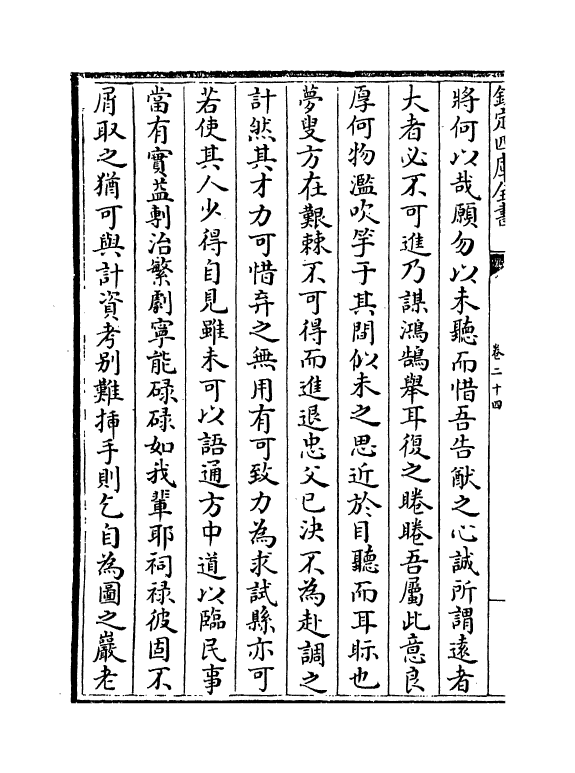 欽定四庫全書
卷二十四
將何以哉願勿以未聽而惜吾告猷之心誠所謂遠者
大者必不可進乃謀鴻鵠舉耳復之睠睠吾屬此意良
厚何物濫吹竽于其間似未之思近於目聽而耳眎也
夢叟方在艱棘不可得而進退忠父已決不為赴調之
計然其才力可惜弃之無用有可致力為求試縣亦可
若使其人少得自見雖未可以語通方中道以臨民事
當有實益剸治繁劇寧能碌碌如我輩耶祠祿彼固不
屑取之猶可與計資考别難揷手則乞自為圖之巖老